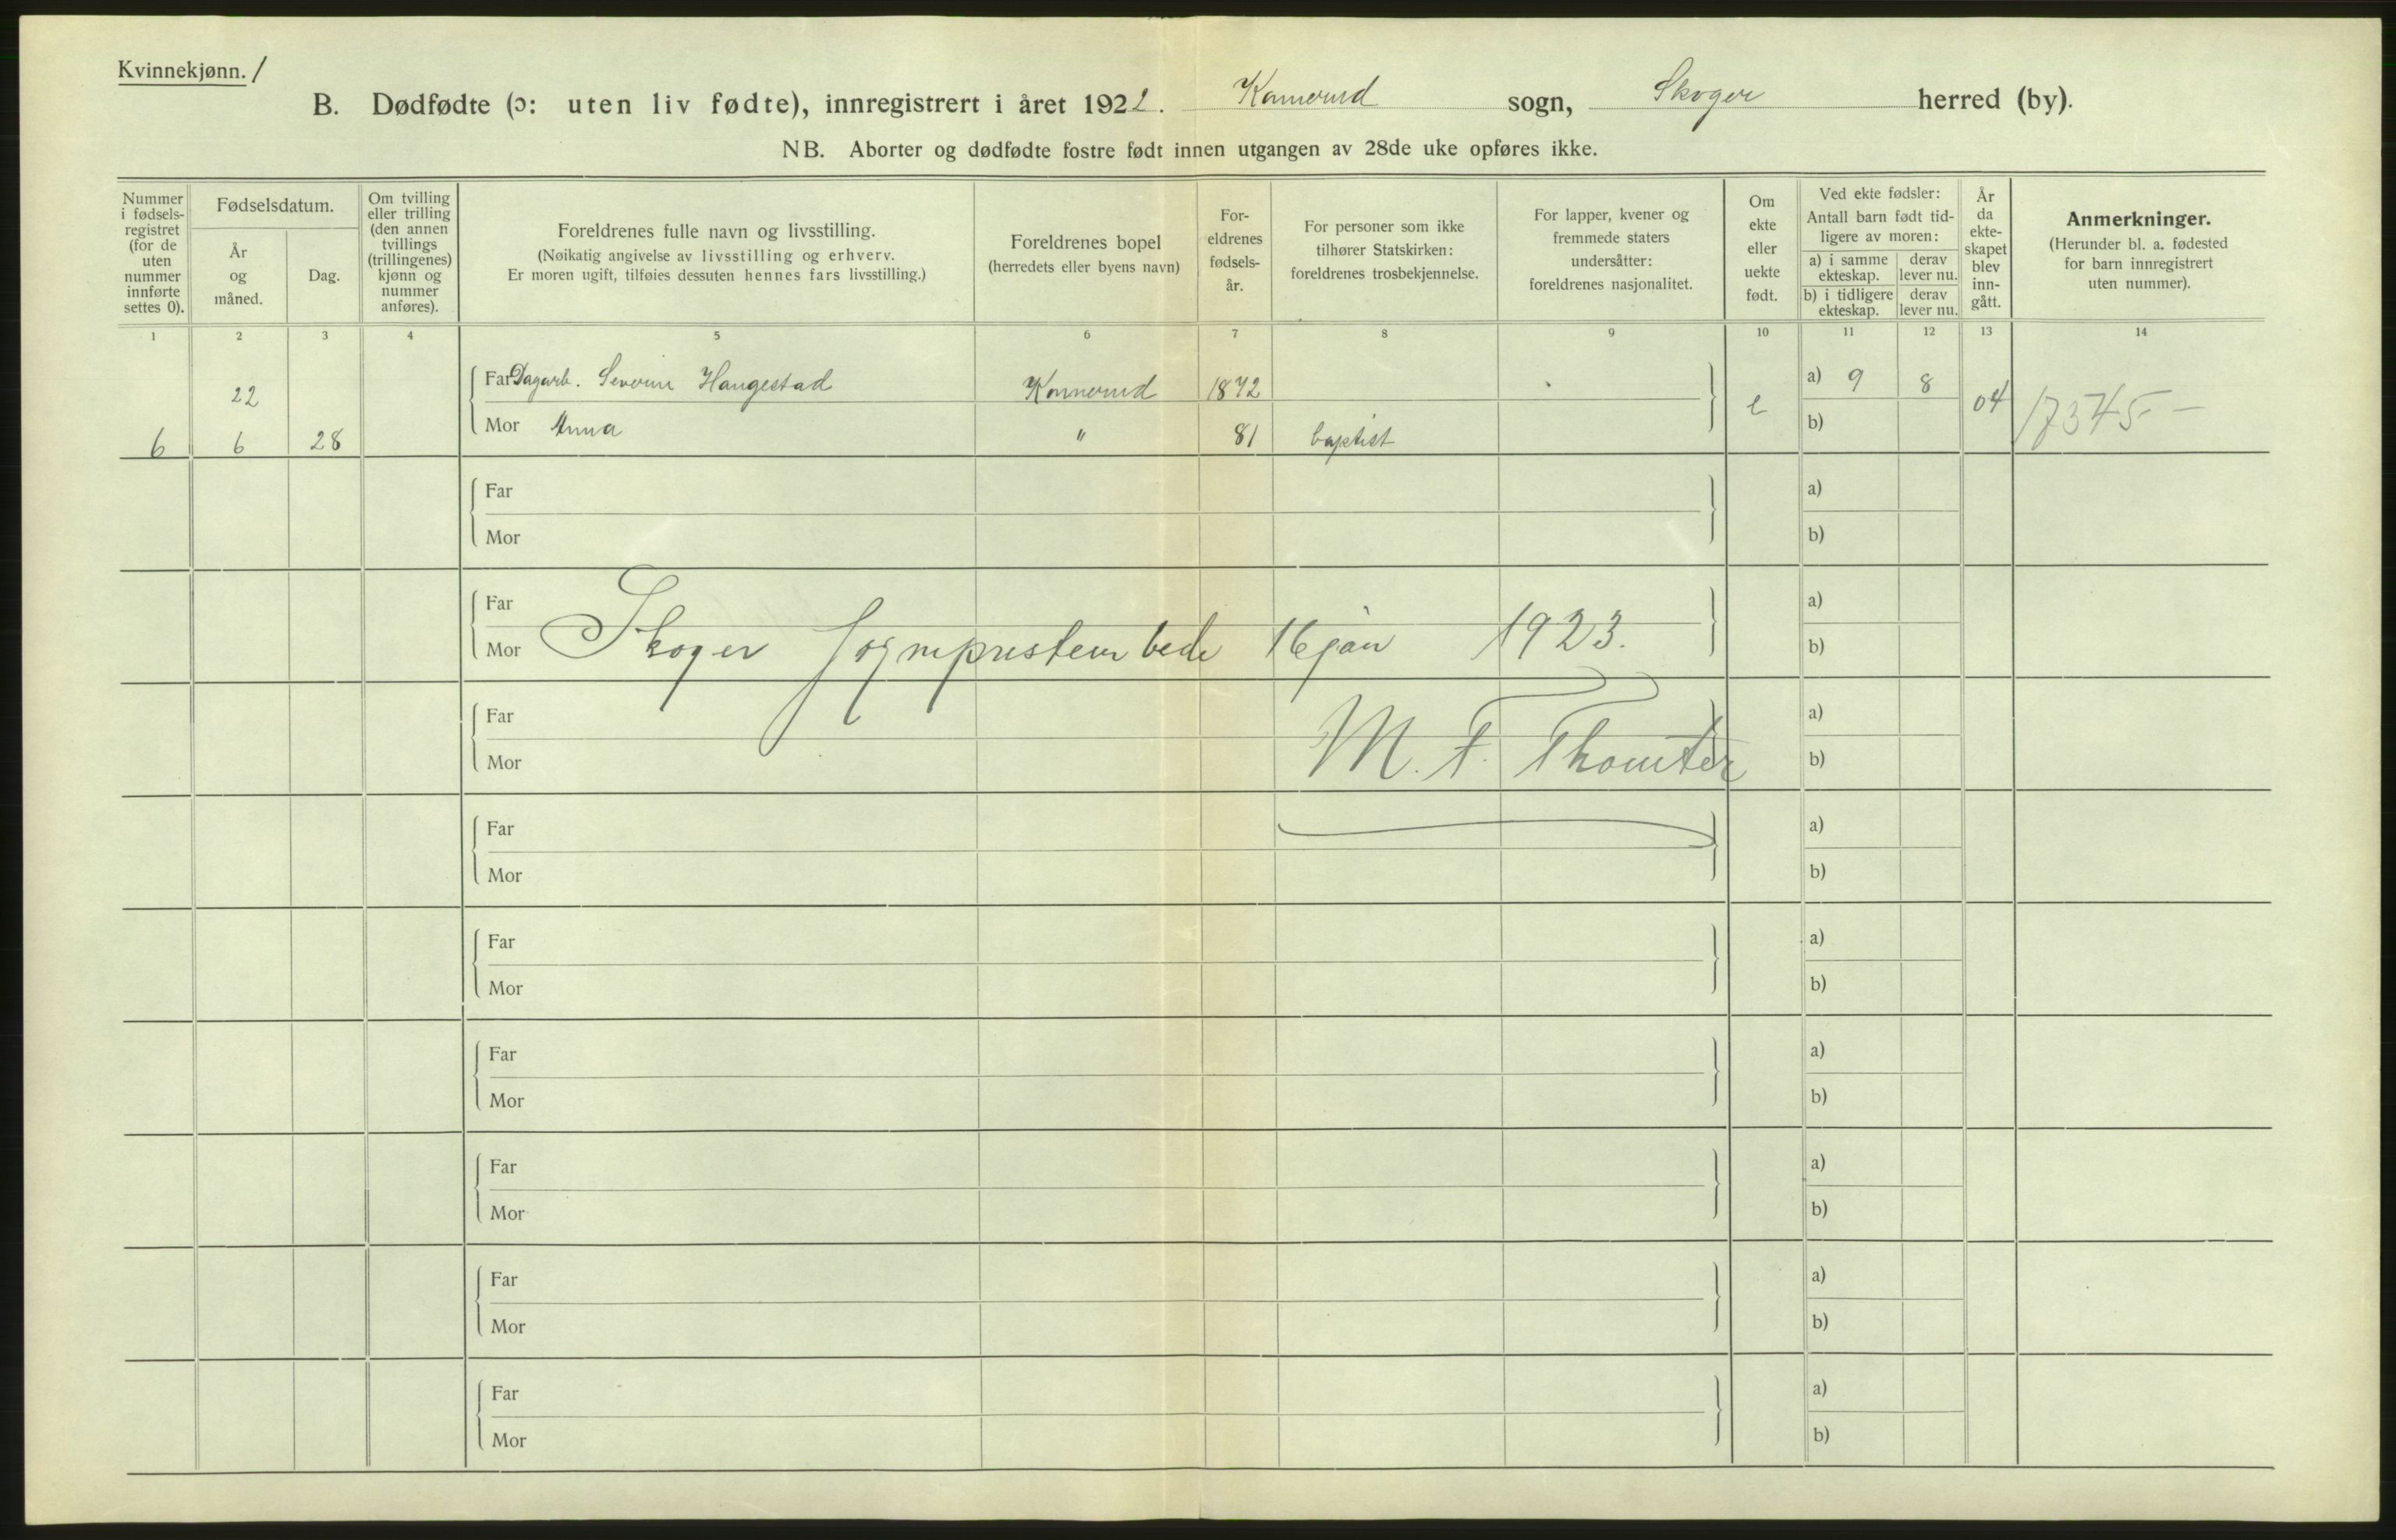 Kvinnekjønn. /
B. Dødfødte (ɔ: uten liv fødte), innregistrert i året 1922. Konnerud sogn, Skoger herred (by).
NB. Aborter og dødfødte fostre født innen utgangen av 28de uke opføres ikke.
Nummer i fødsels-registret (for de uten nummer innførte settes 0).
Fødselsdatum.
År og måned.
Dag.
Om tvilling eller trilling (den annen tvillings (trillingenes) kjønn og nummer anføres).
Foreldrenes fulle navn og livsstilling.
(Nøikatig angivelse av livsstilling og erhverv.
Er moren ugift, tilføies dessuten hennes fars livsstilling.)
Foreldrenes bopel
(herredets eller byens navn)
For-eldrenes fødsels-år.
For personer som ikke tilhører Statskirken: foreldrenes trosbekjennelse.
For lapper, kvener og fremmede staters undersåtter: foreldrenes nasjonalitet.
Om ekte eller uekte født.
Ved ekte fødsler:
Antall barn født tid-ligere av moren:
a) i samme ekteskap.
derav lever nu.
b) i tidligere ekteskap.
derav lever nu.
År da ekte-skapet blev inn-gått.
Anmerkninger.
(Herunder bl. a. fødested for barn innregistrert uten nummer).
1 2 3 4 5 6 7 8 9 10 11 12 13 14
22 Far Dagarb. Severin Haugestad Konnerud 1872 a) 9 8
e 04 17345 –
6 6 28 Mor Anna " 81 baptist b)
Far a)
Mor b)
Far a)
Mor Skoger sogneprestembede 16 jan 1923. b)
Far a)
Mor M. F. Thomter b)
Far a)
Mor b)
Far a)
Mor b)
Far a)
Mor b)
Far a)
Mor b)
Far a)
Mor b)
Far a)
Mor b)